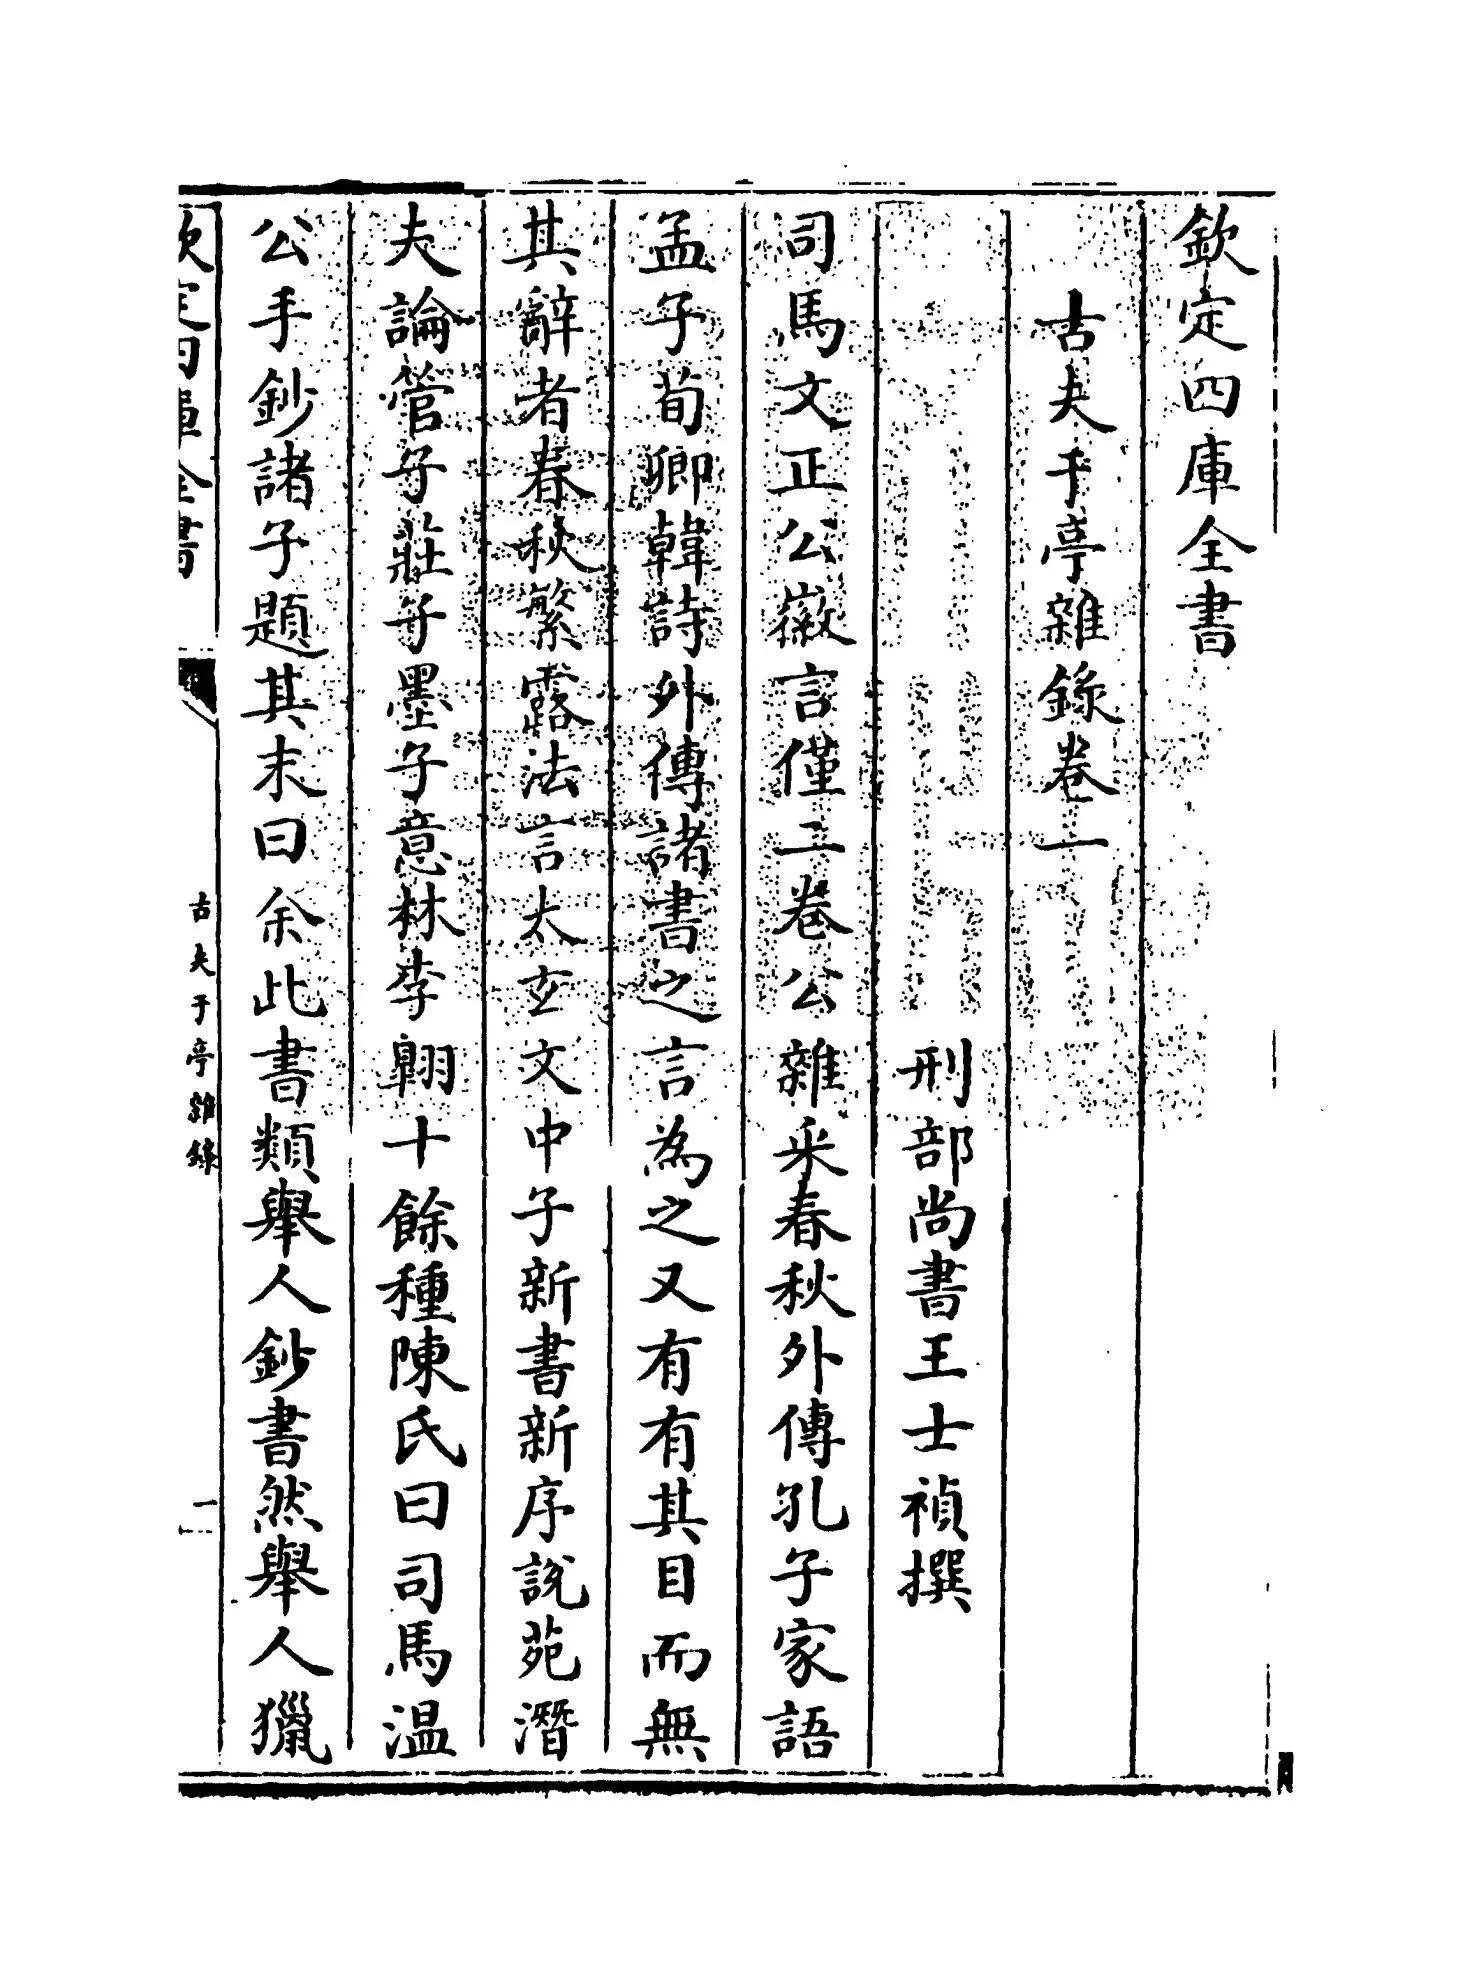 欽定四庫全書
古夫于亭雜錄卷一
刑部尚書王士禎撰
司馬文正公徽言僅二卷公雜采春秋外傳孔子家語
孟子荀卿韓詩外傳諸書之言為之又有有其目而無
其辭者春秋繁露法言太玄文中子新書新序說苑潛
夫論管子莊子墨子意林李翺十餘種陳氏曰司馬温
公手鈔諸子題其末曰余此書類舉人鈔書然舉人獵
欽定四庫全書
古夫于亭雜錄
一